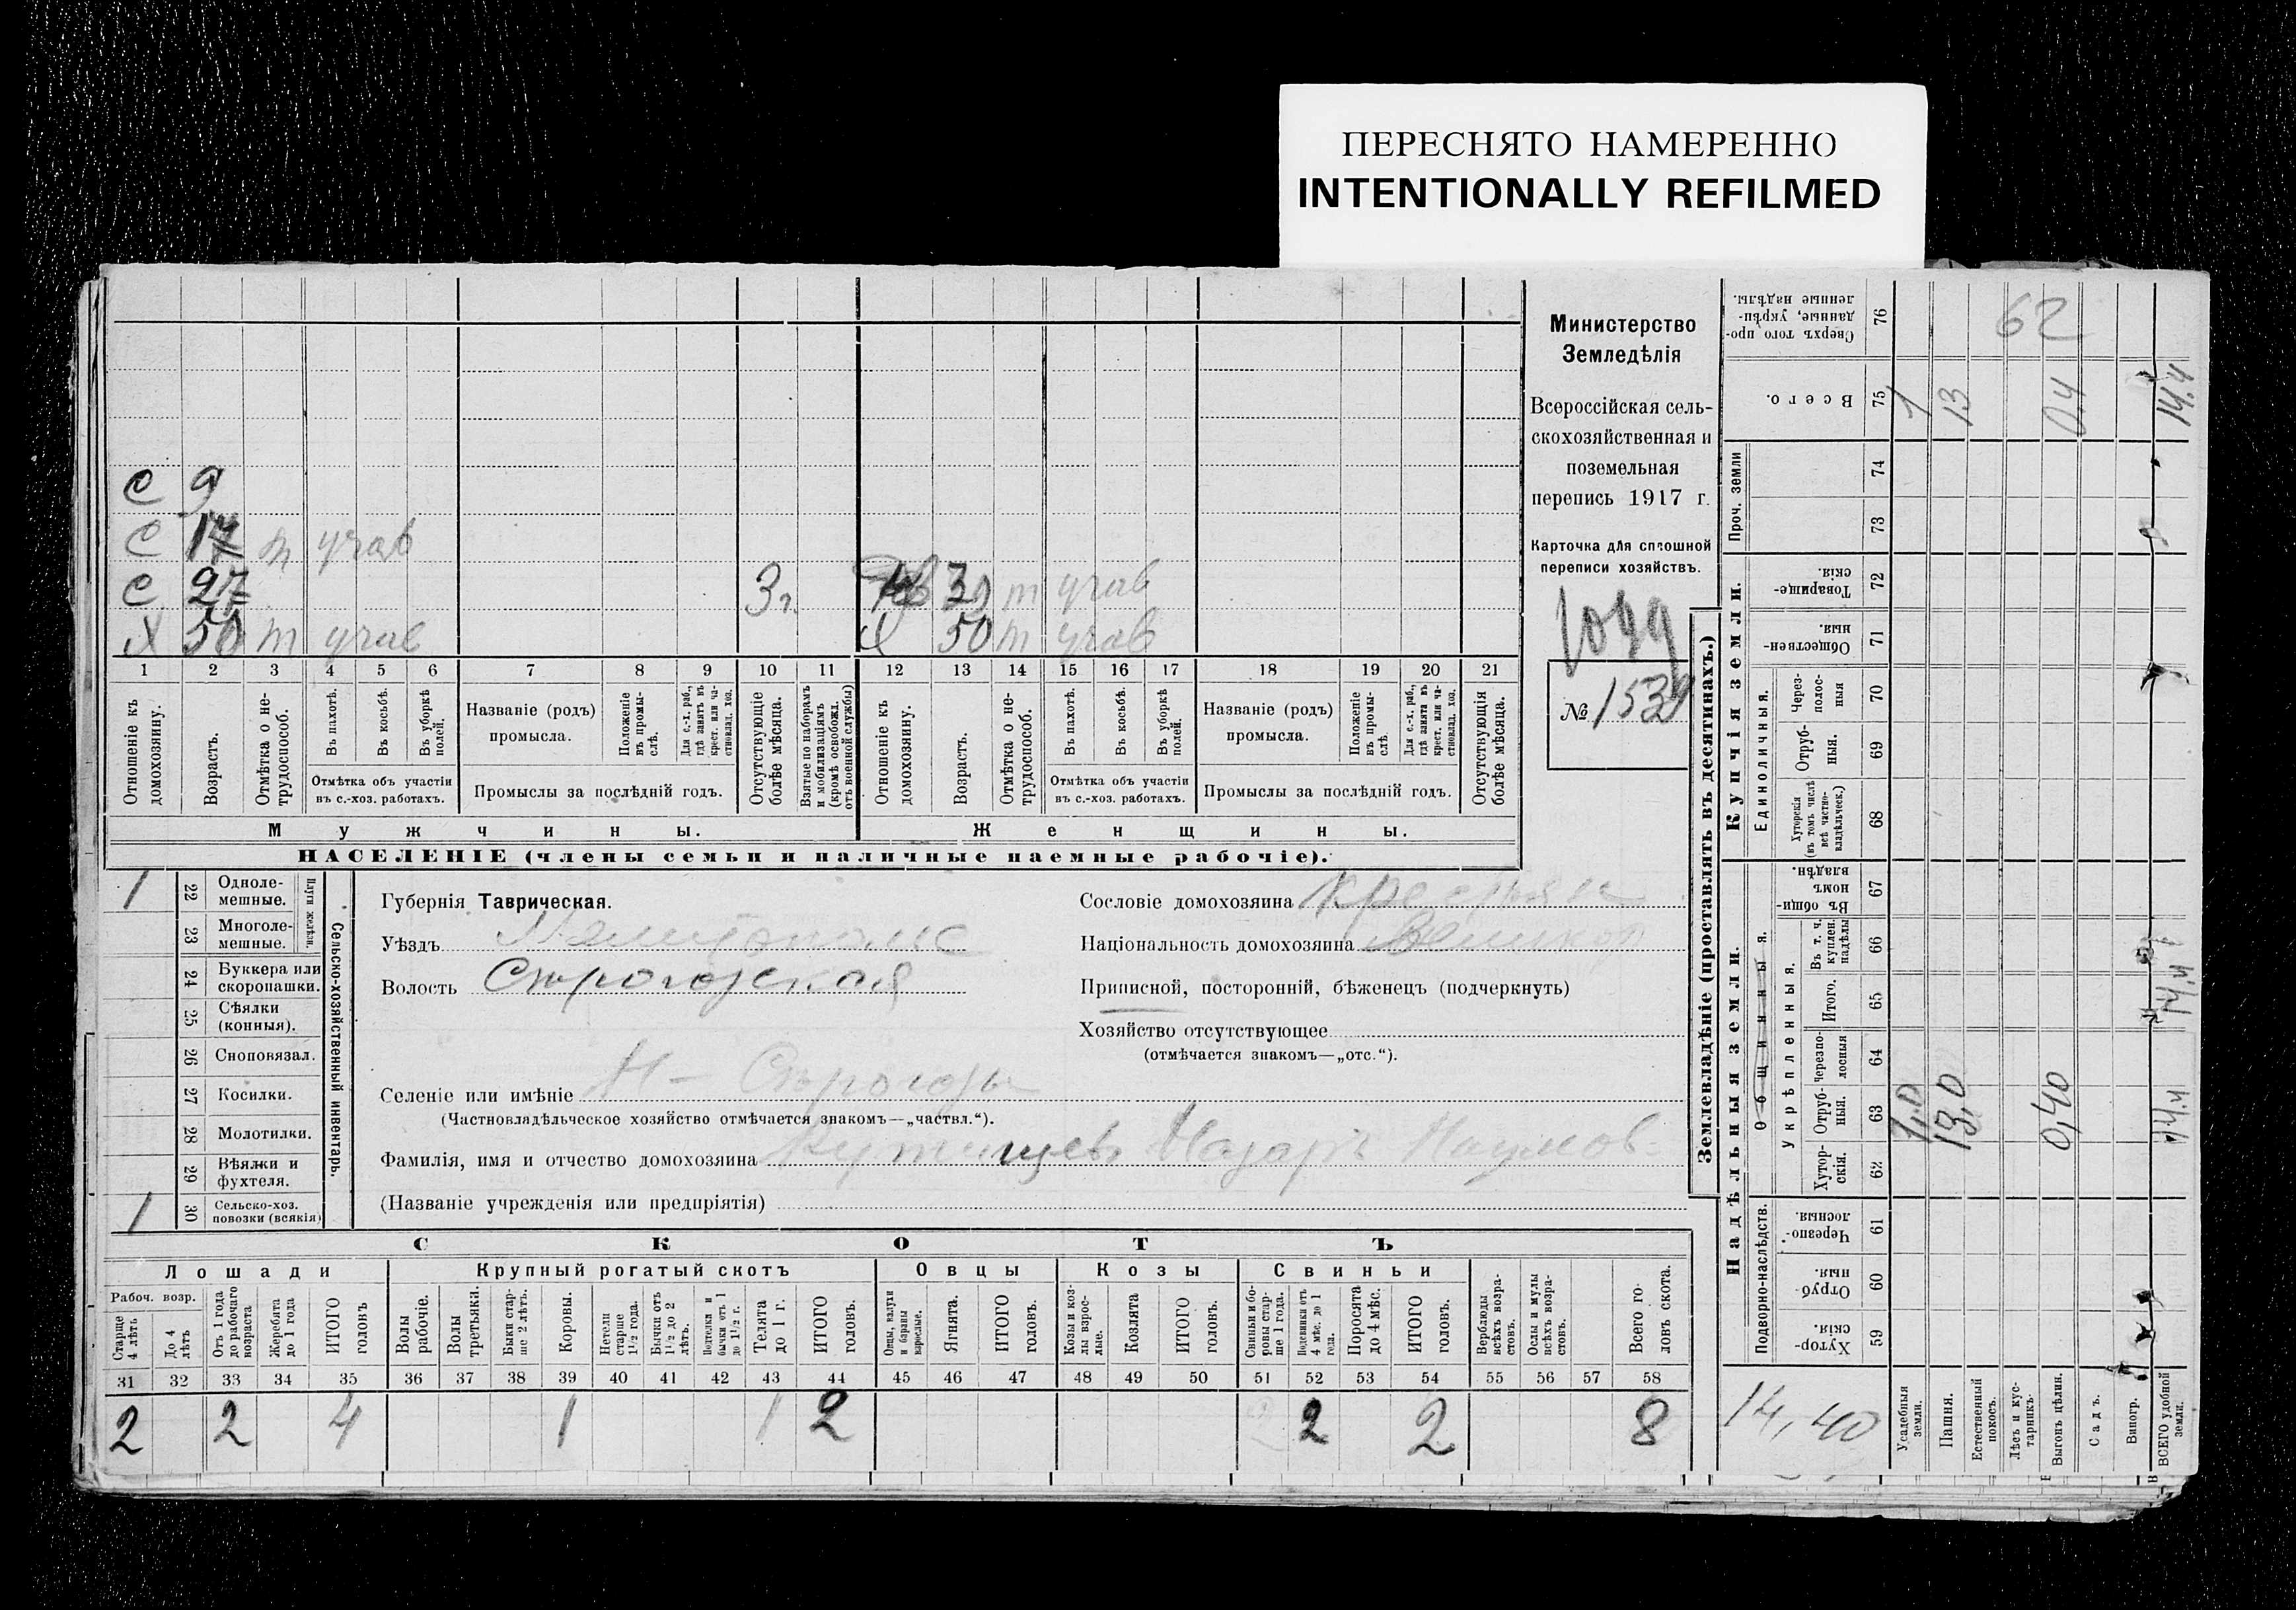 ПЕРЕСНЯТО НАМЕРЕННО
INTENTIONALLY REFILMED
С 9
С 17 m учав
С 27 3 г.
Х 50 m учав
39 m учав
Х 50 m учав
1 2 3 4 5 6 7 8 9 10 11 12 13 14 15 16 17 18 19 20 21
Отношеніе къ домохозяину.
Возрастъ.
Отмѣтка о нетрудоспособ.
Въ пахотѣ.
Въ косьбѣ.
Въ уборкѣ полей.
Отмѣтка объ участіи
въ с.-хоз. работахъ.
Названіе (родъ)
промысла.
Положеніе въ промыслѣ.
Для с.-х. раб., гдѣ занятъ въ крест. или частновлад. хоз.
Промыслы за послѣдній годъ.
Отсутствующіе болѣе мѣсяца.
Взятые по наборамъ и мобилизаціямъ (кромѣ освобожд. отъ военной службы)
Отношеніе къ домохозяину.
Возрастъ.
Отмѣтка о нетрудоспособ.
Въ пахотѣ.
Въ косьбѣ.
Въ уборкѣ полей.
Отмѣтка объ участіи
въ с.-хоз. работахъ.
Названіе (родъ)
промысла.
Положеніе въ промыслѣ.
Для с.-х. раб., гдѣ занята въ крест. или частновлад. хоз.
Промыслы за послѣдній годъ.
Отсутствующія болѣе мѣсяца.
Мужчины.
Женщины.
НАСЕЛЕНІЕ (члены семьи и наличные наемные рабочіе).
Министерство
Земледѣлія
Всероссійская сель-
скохозяйственная и
поземельная
перепись 1917 г.
Карточка для сплошной
переписи хозяйствъ.
1039
№ 1539
1 22 Одноле-
мешные.
23 Многоле-
мешные.
Плуги желѣзн.
24 Буккера или
скоропашки.
25 Сѣялки
(конныя).
26 Сноповязал.
27 Косилки.
28 Молотилки.
29 Вѣялки и
фухтеля.
1 30 Сельско-хоз.
повозки (всякія)
Сельско-хозяйственный инвентарь.
Губернія Таврическая.
Уѣздъ Мелитопольс
Волость Строгозская
Селеніе или имѣніе Н - Строгозы
(Частновладѣльческое хозяйство отмѣчается знакомъ—„частвл.“).
Фамилія, имя и отчество домохозяина Назаръ Наумов
(Названіе учрежденія или предпріятія)
Сословіе домохозяина крестьян
Національность домохозяина Великор
Приписной, посторонній, бѣженецъ (подчеркнуть)
Хозяйство отсутствующее
(отмѣчается знакомъ—„отс.“).
СКОТЪ
Лошади
Крупный рогатый скотъ
Овцы
Козы
Свиньи
Рабоч. возр.
Старше 4 лѣтъ
До 4 лѣтъ
Отъ 1 года до рабочаго возраста
Жеребята до 1 года
ИТОГО головъ
Волы рабочіе.
Волы третьяки.
Быки старше 2 лѣтъ.
Коровы.
Нетели старше 1½ года.
Бычки отъ 1½ до 2 лѣтъ.
Подтелки и бычки отъ 1 до 1½ г.
Телята до 1 г.
ИТОГО головъ.
Овцы, валухи и бараны взрослые.
Ягнята.
ИТОГО головъ.
Козы и козлы взрослые.
Козлята
ИТОГО головъ.
Свиньи и боровы старше 1 года.
Подсвинки отъ 4 мѣс. до 1 года.
Поросята до 4 мѣс.
ИТОГО головъ.
Верблюды всѣхъ возрастовъ.
Ослы и мулы всѣхъ возрастовъ.
Всего головъ скота.
31 32 33 34 35 36 37 38 39 40 41 42 43 44 45 46 47 48 49 50 51 52 53 54 55 56 57 58
2 2 4 1 1 2 2 2 8
Землевладѣніе (проставлять въ десятинахъ.)
Надѣльныя земли.
Купчія земли.
Проч. земли
Подворно-наслѣдств.
Общинныя.
Укрѣпленныя.
Единоличныя.
Хуторскія. 59
Отрубныя. 60
Черезполосныя. 61
Хуторскія. 62
Отрубныя. 63
Черезполосныя 64
Итого. 65
Въ т. ч. куплен. надѣлы 66
Въ общинномъ владѣн. 67
Хуторскія (въ томъ числѣ всѣ частновладѣльческ.) 68
Отрубныя. 69
Черезполосныя 70
Общественныя. 71
Товарищескія. 72
73
74
Всего. 75
Сверхъ того проданные, укрѣпленные надѣлы. 76
14,40
Усадебныя земли.
Пашня.
Естественный покосъ.
Лѣсъ и кустарникъ.
Выгонъ цѣлин.
Садъ.
Виногр.
ВСЕГО удобной земли.
1,0 13,0 0,40 14.4
14.4
1 13 0,4 14.4
62